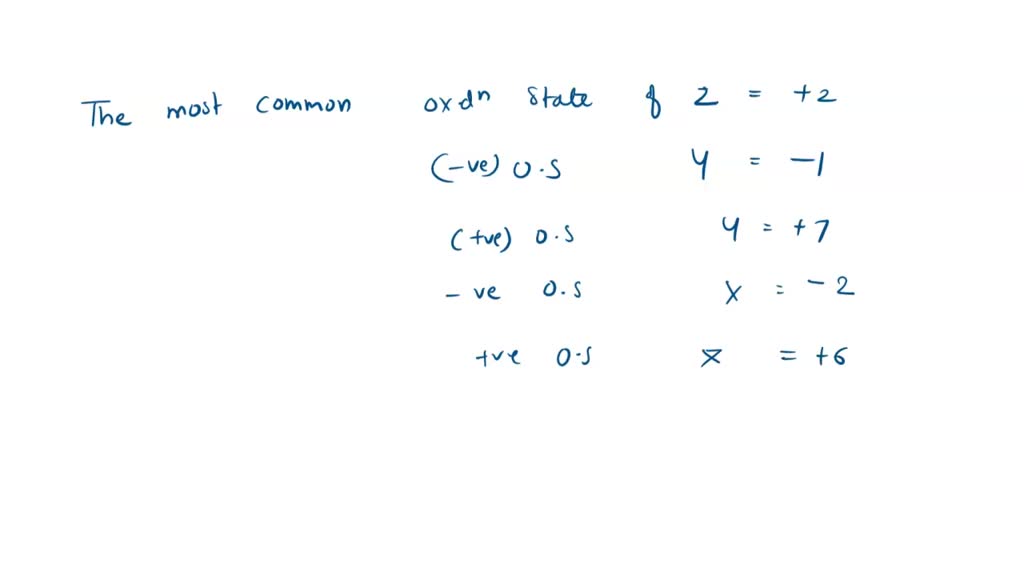 The most common oxdn state of Z = +2
(-ve) O.S Y = -1
(+ve) O.S Y = +7
- ve O.S X = - 2
+ve O.S X = +6